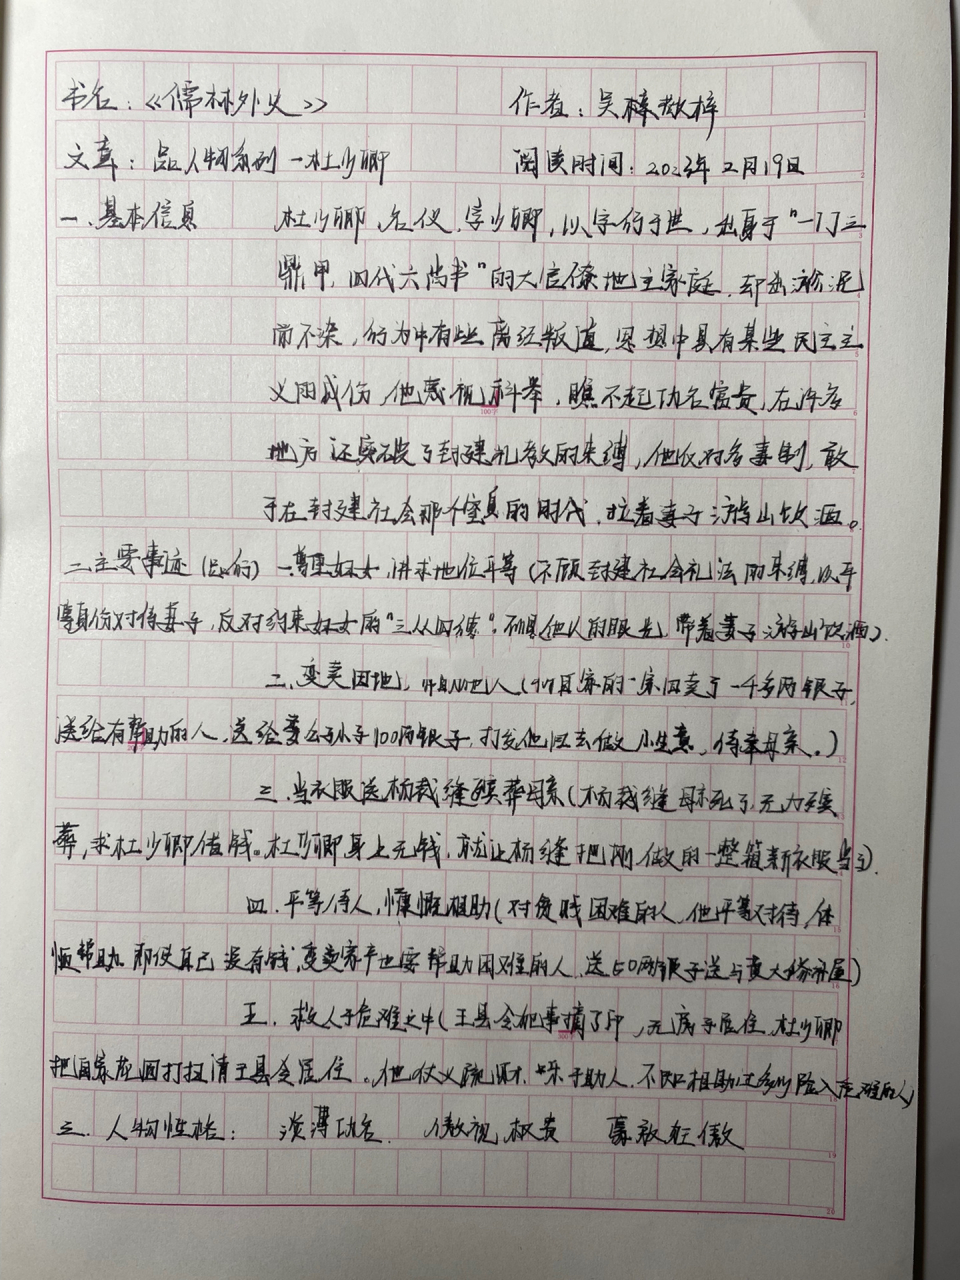 书名：《儒林外史》 作者：吴梓敬梓
文章：品人物系列一杜少卿 阅读时间：2023年2月19日
一、基本信息 杜少卿，名仪，字少卿，以字行于世，出身于"一门三
鼎甲，四代六尚书"的大官僚地主家庭，却出淤泥
而不染，行为中有些离经叛道，思想中具有某些民主主
义的成份，他蔑视科举，瞧不起功名富贵，在许多
地方还突破了封建礼教的束缚，他反对多妻制，敢
于在封建社会那个窒息的时代，拉着妻子游山饮酒。
二主要事迹 一.尊重妇女，讲求地位平等（不顾封建社会礼法的束缚，以平
等身份对待妻子，反对约束妇女的"三从四德"，不惧他人的眼光，带着妻子游山饮酒）.
二、变卖田地，他人（自家的一宗田卖了一千多两银子，
送给有帮助的人，送给娄公子孙子100两银子，打发他回去做小生意，侍奉母亲。）
三.当衣服送杨裁缝殡葬母亲（杨裁缝母亲死了，无力殡
葬，求杜少卿借钱。杜少卿身上无钱，就让杨缝把刚做的一整箱新衣服当）.
四.平等待人，慷慨相助（对贫贱困难的人，他平等对待，体
恤帮助，即使自己没有钱，变卖家产也要帮助困难的人，送50两银子送与黄大修房屋）
五.救人于危难之中（王县令犯事摘了印，无房子居住，杜少卿
把自家花园打扫请王县令居住。他仗义疏财，乐于助人，不知相助过多少陷入危难的人）
三.人物性格： 淡薄功名. 傲视权贵 豪放狂傲